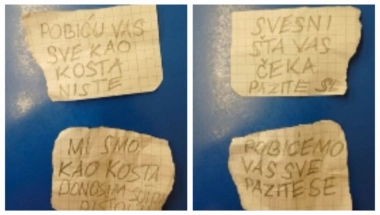 POBIĆU VAS
SVE KAO
KOSTA
NISTE
SVESNI
ŠTA VAS
ČEKA
PAZITE SE
MI SMO
KAO KOSTA
DONOSIM
POBIĆEMO
VAS SVE
PAZITE SE